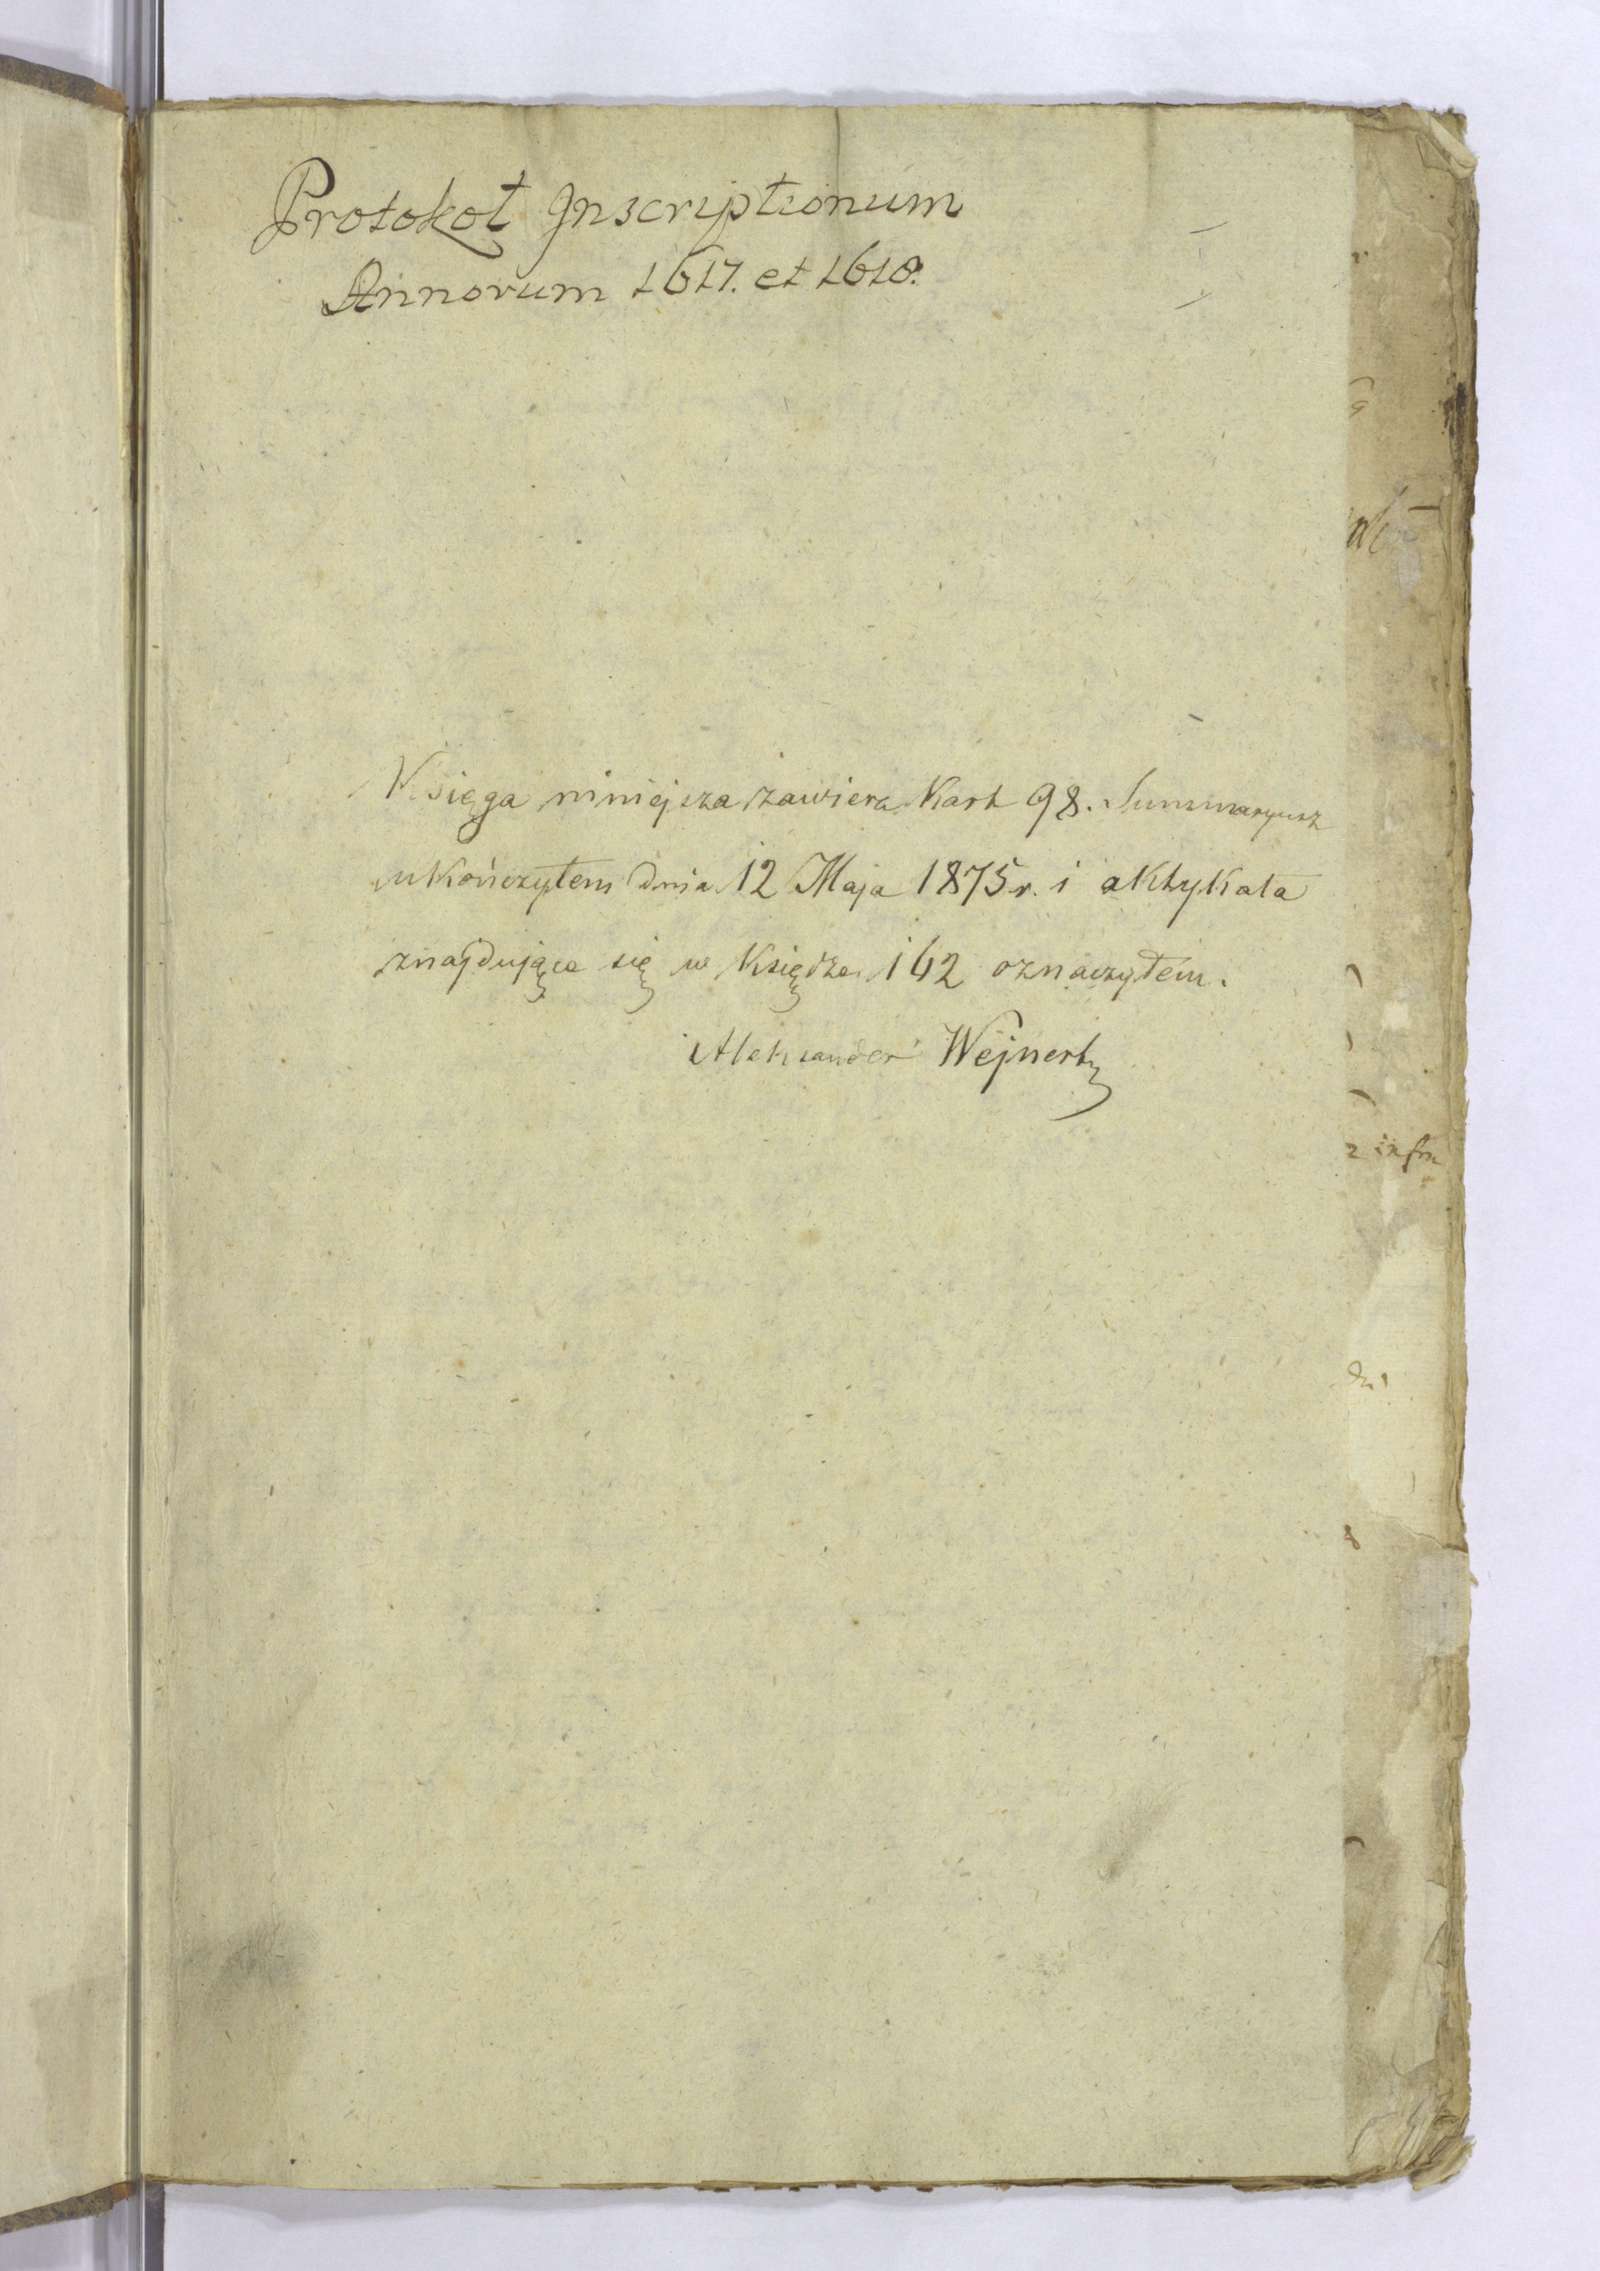 Protokoł Inscriptionum
Annorum 1617. et 1618.
Księga niniejsza zawiera Kart 98. Summaryusz
ukończyłem dnia 12 Maja 1875 r. i aktykata
znajdujące się w Księdze 162 oznaczyłem.
Aleksander Wejnert
infra